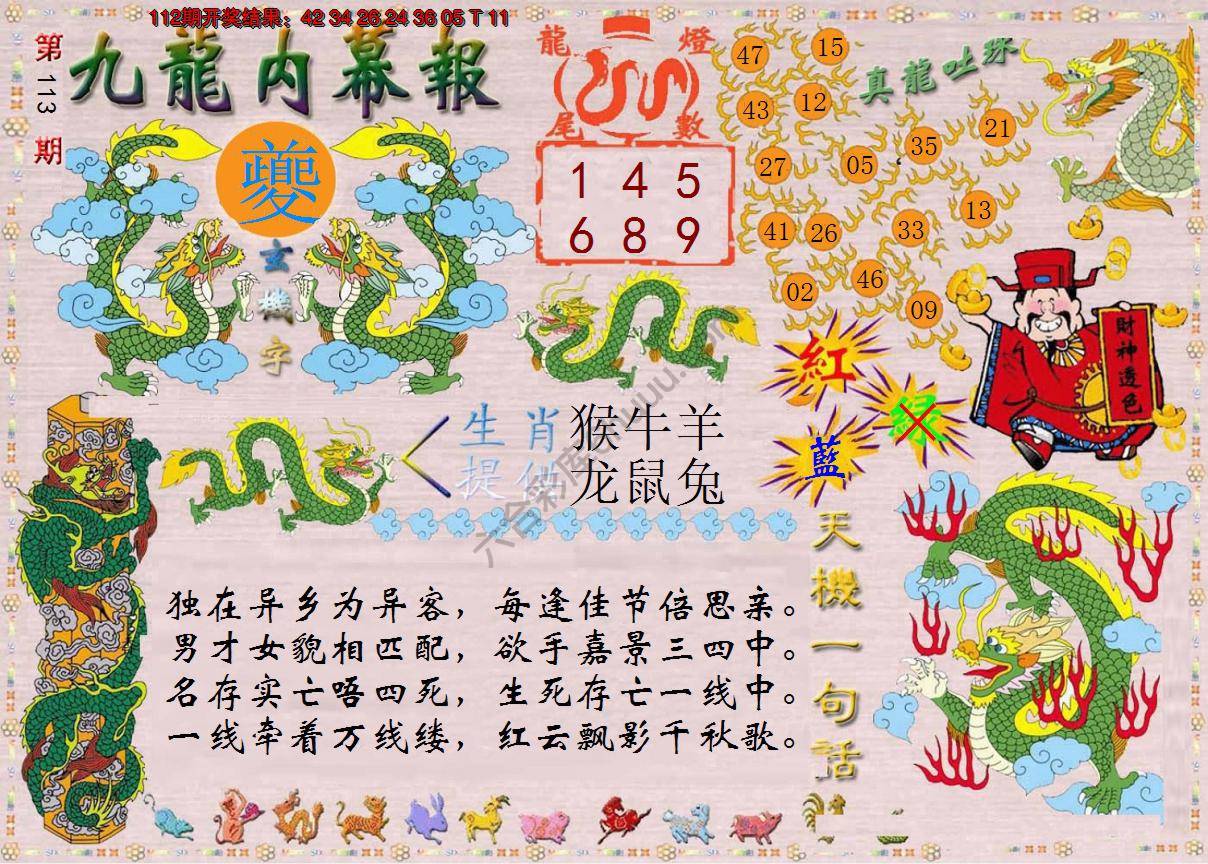 112期开奖结果：42 34 26 24 36 05 T 11
第113期
九龍内幕報
夔
玄機字
龍燈
尾數
1 4 5
6 8 9
真龍吐珠
47 15
43 12
27 05 35 21
41 26 33 13
02 46 09
財神透色
紅
綠
藍
生肖
提供
猴牛羊
龙鼠兔
天機一句話
独在异乡为异客，每逢佳节倍思亲。
男才女貌相匹配，欲手嘉景三四中。
名存实亡唔四死，生死存亡一线中。
一线牵着万线缕，红云飘影千秋歌。